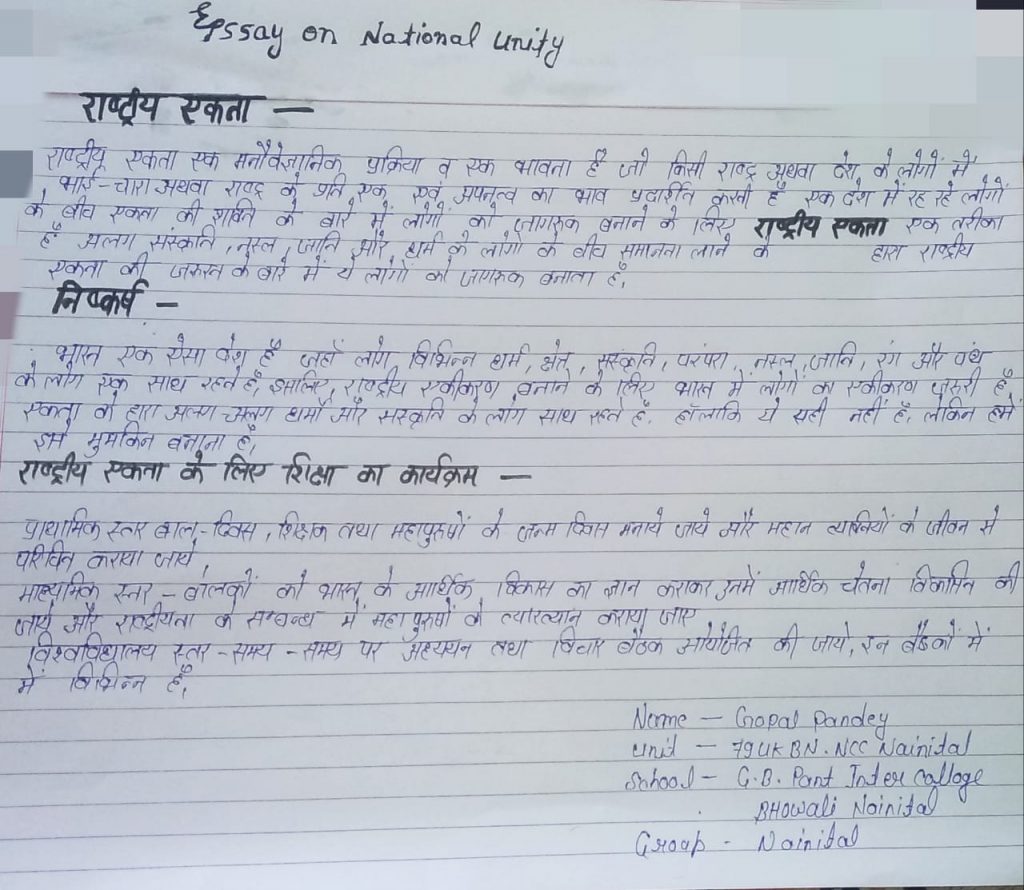 Essay on National Unity
राष्ट्रीय एकता —
राष्ट्रीय एकता एक मनौवैज्ञानिक प्रक्रिया व एक भावना है जो किसी राष्ट्र अथवा देश के लोगों में
भाई-चारा अथवा राष्ट्र के प्रति एक एवं अपनत्व का भाव प्रदर्शित करती है एक देश में रह रहे लोगों
के बीच एकता की शक्ति के बारे में लोगों को जागरुक बनाने के लिए राष्ट्रीय एकता एक तरीका
है अलग संस्कृति, नस्ल, जाति और धर्म के लोगों के बीच समानता लाने के द्वारा राष्ट्रीय
एकता की जरुरत के बारे में ये लोगों को जागरुक बनाता है,
निष्कर्ष —
भारत एक ऐसा देश है जहाँ लोग विभिन्न धर्म, क्षेत्र, संस्कृति, परंपरा, नस्ल, जाति, रंग और पंथ
के लोग एक साथ रहते है, इसलिए राष्ट्रीय एकीकरण बनाने के लिए भारत में लोगों का एकीकरण जरुरी है
एकता के द्वारा अलग-अलग धर्मो और संस्कृति के लोग साथ रहते है, हाँलाकि ये सही नहीं है, लेकिन हमें
इसे मुमकिन बनाना है,
राष्ट्रीय एकता के लिए शिक्षा का कार्यक्रम —
प्राथामिक स्तर बाल-दिवस, शिक्षक तथा महापुरुषों के जन्म दिवस मनाये जाये और महान व्यक्तियों के जीवन से
परिचित कराया जाये,
माध्यमिक स्तर - बालकों को भारत के आर्थिक विकास का ज्ञान कराकर उनमें आर्थिक चेतना विकसित की
जाये और राष्ट्रीयता के सम्बन्ध में महापुरुषों के व्याख्यान कराया जाए
विश्वविद्यालय स्तर - समय - समय पर अध्ययन तथा विचार बैठक आयोजित की जाये, इन बैठकों में
में विभिन्न है,
Name — Gopal Pandey
Unit — 79 UK BN. NCC Nainital
School — G.B. Pant Inter College
BHOWali Nainital
Group - Nainital